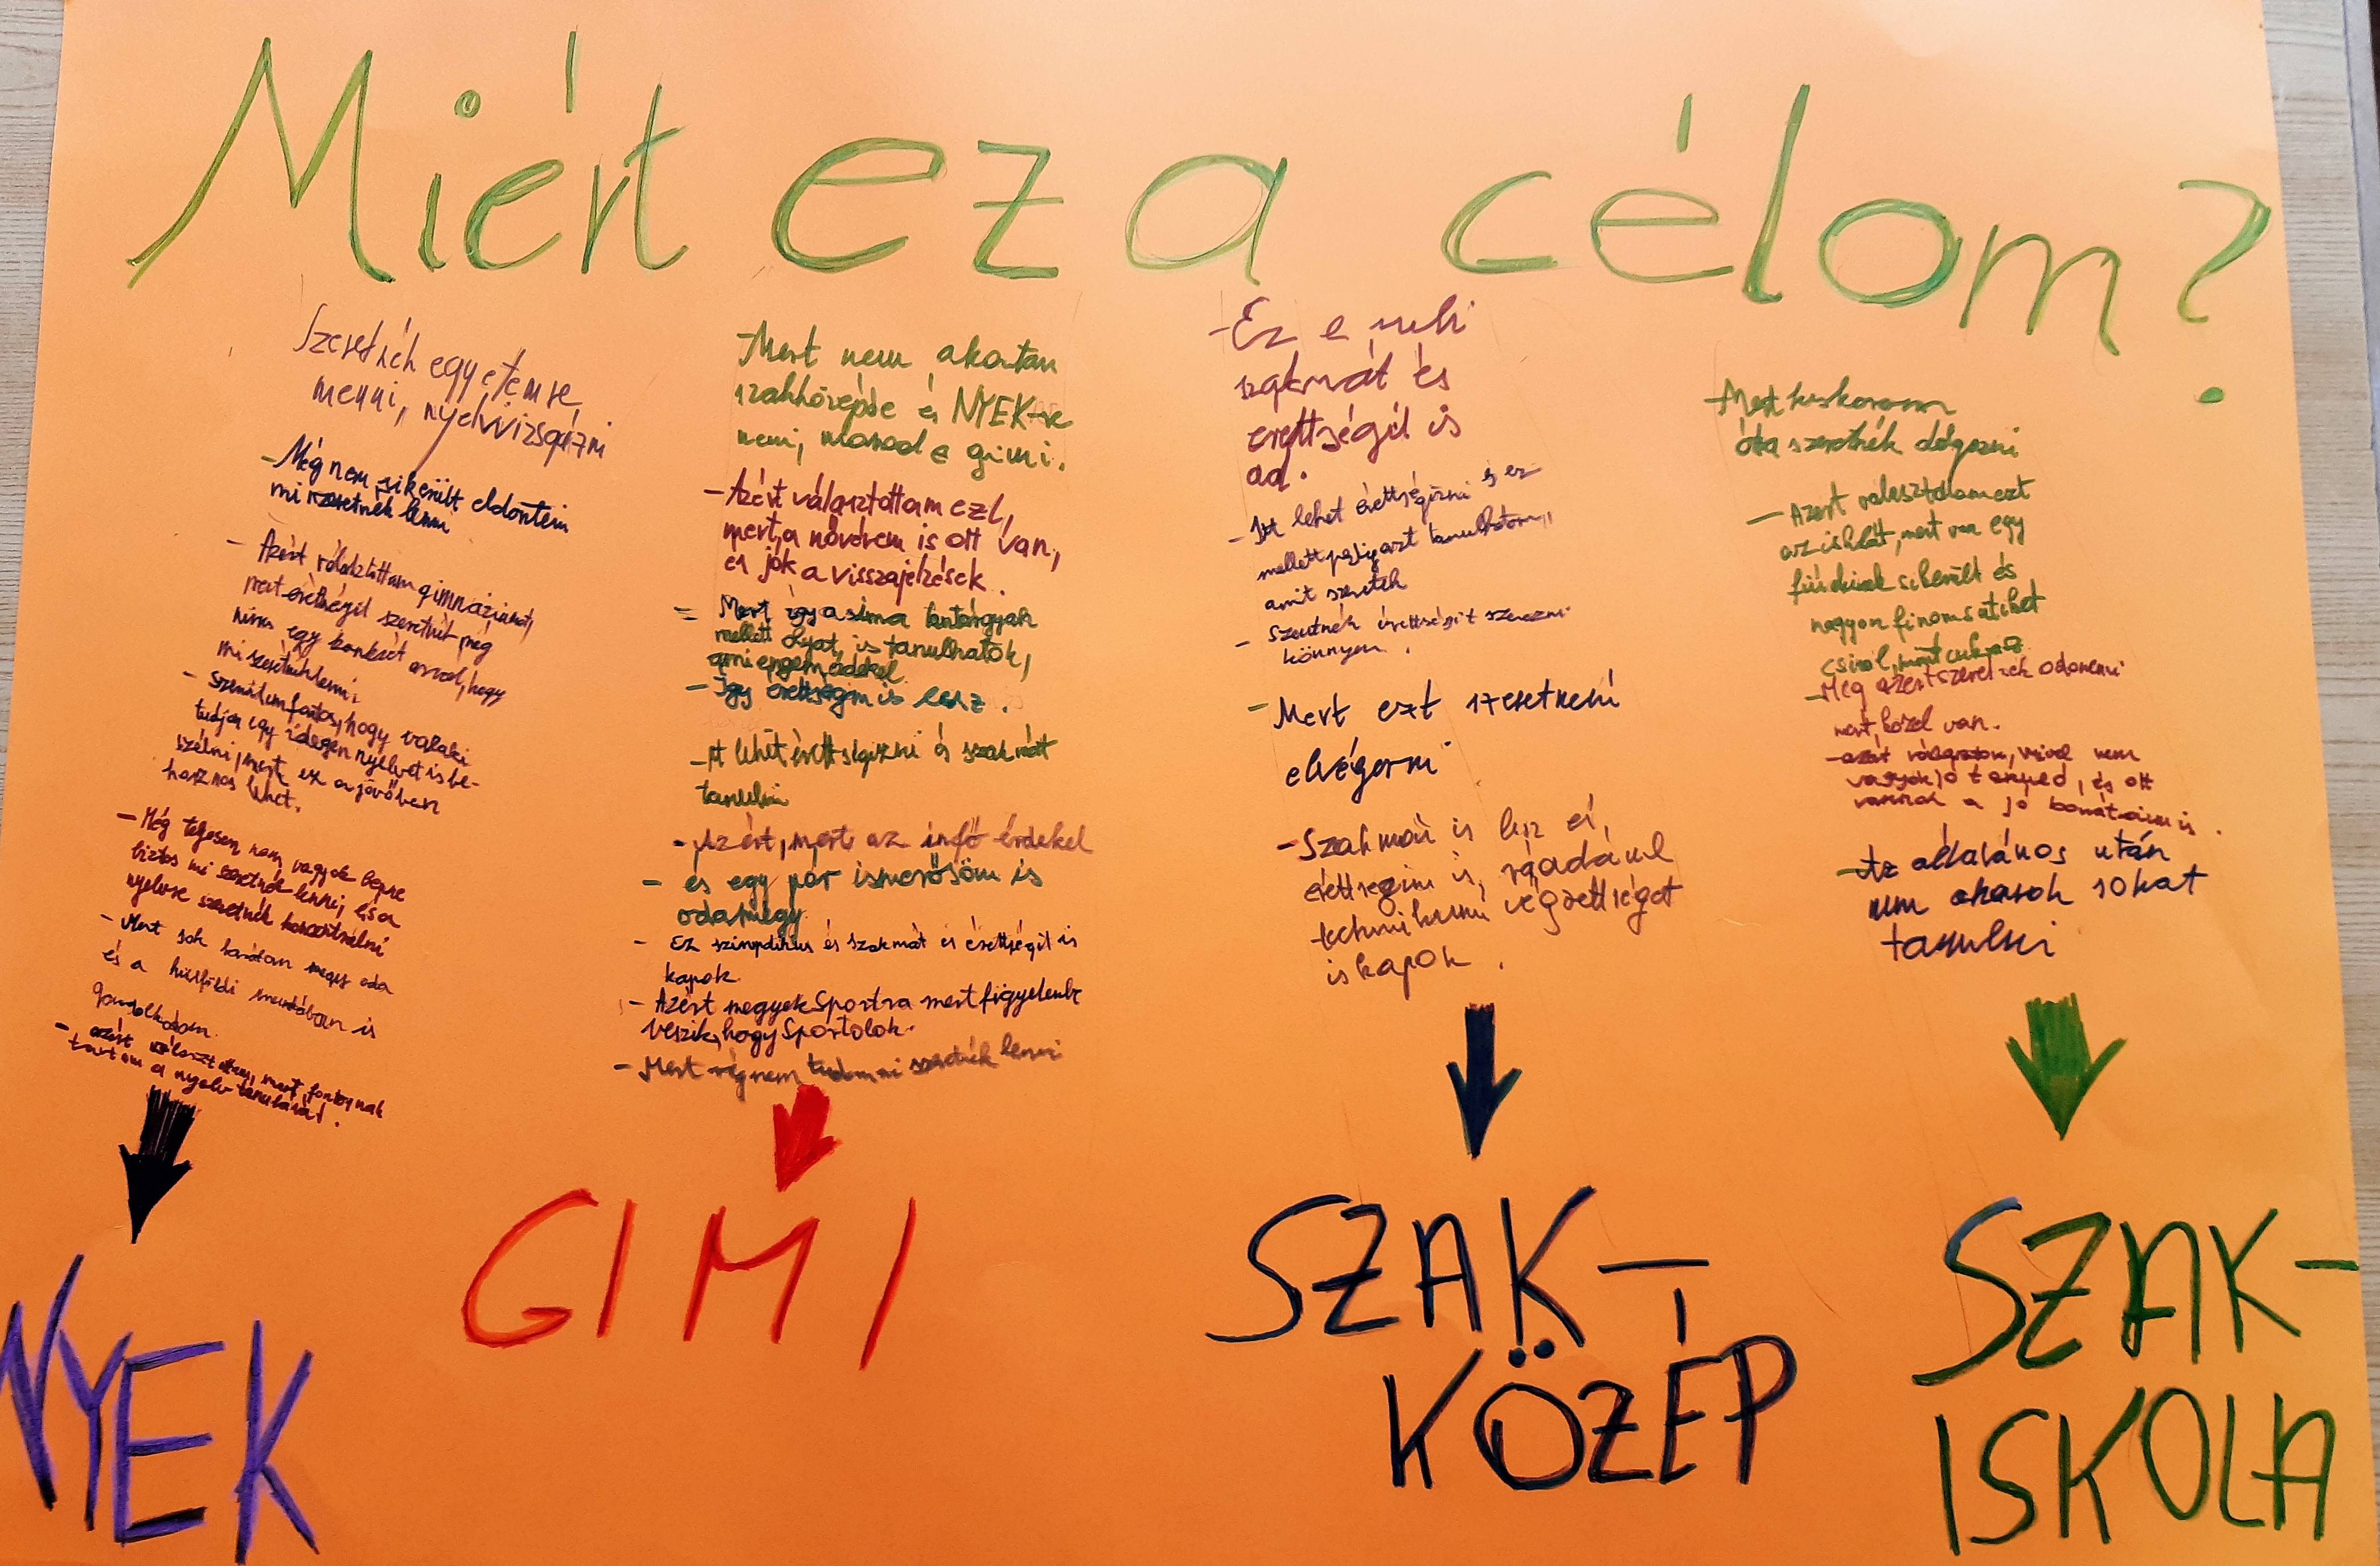 Miért ez a célom?
Szeretnék egyetemre
menni, nyelvvizsgázni
- Még nem sikerült eldöntein
mi szeretnék lenni
- Azért választottam gimnáziumot,
mert érettségit szeretnék még
nincs egy konkrét arról, hogy
mi szeretnék lenni
- Szerintem fontos, hogy valaki
tudjon egy idegen nyelvet is be-
szélni, mert ez a jövőben
hasznos lehet.
- Még teljesen nem vagyok benne
biztos mi szeretnék lenni, és a
nyelvre szeretnék
- Mert sok barátom megy oda
és a külföldi is
gondolkodom.
- azért választottam, mert fontosnak
tartom a nyelv tanulását.
NYEK
- Mert nem akartam
szakközépbe és NYEK-re
meni, marad a gimi.
- Azért választottam ezt,
mert a nővérem is ott van,
és jók a visszajelzések.
- Mert így a sima tantárgyak
mellett olyat is tanulhatok,
ami engem érdekel
- Így érettségim is lesz.
- Itt lehet érettségizni és szakmát
tanulni
- Azért, mert az infó érdekel
- és egy pár ismerősöm is
oda megy
- Ez szimpatikus és szakmát és érettségit is
kapok
- Azért megyek Sportra mert figyelembe
veszik, hogy Sportolok.
- Mert még nem tudom mi szeretnék lenni
GIMI
- Ez a suli
szakmát és
érettségit is
ad.
- Itt lehet érettségizni és ez
mellett pedig azt tanulhatom,
amit szeretek
- Szeretnék érettségit szerezni
könnyen.
- Mert ezt szeretném
elvégezni
- Szakmám is lesz és,
érettségim is, ráadásul
technikumi végzettséget
is kapok.
SZAK-
KÖZÉP
- Mert kiskorom
óta szeretnék dolgozni
- Azért választottam ezt
az iskolát, mert van egy
sikerült és
nagyon finom sütiket
csinál, mint cukrász
- Meg azért szeretnék oda menni
mert, közel van.
- azért választom, mivel nem
vagyok jó tanuló, és ott
vannak a jó barátaim is.
- Az általános után
nem akarok sokat
tanulni
SZAK-
ISKOLA